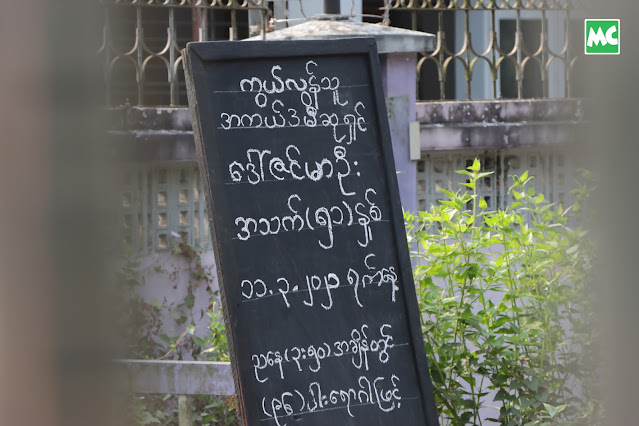 MC
ကွယ်လွန်သူ
အကယ်ဒမီဆုရှင်
ဒေါ်ဇင်မာဦး
အသက်(၅၁)နှစ်
၁၁.၃.၂၀၂၁ ရက်နေ့
ညနေ(၃း၅၀)အချိန်တွင်
ပါးရောဂါဖြင့်